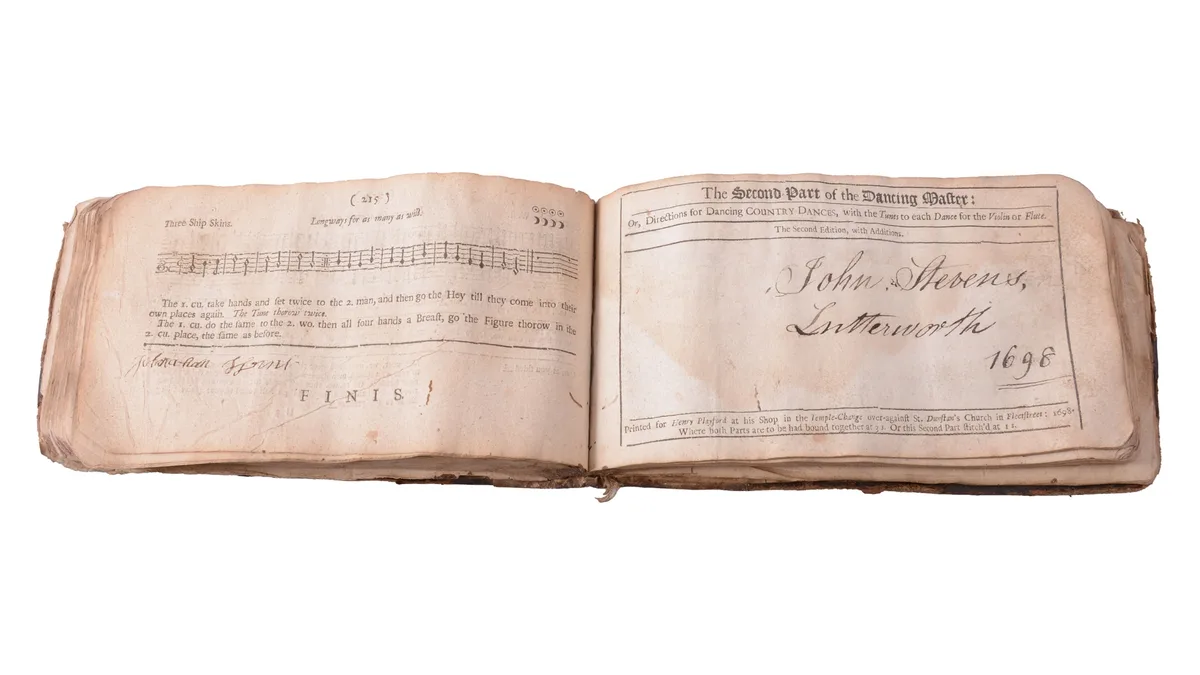 ( 215 )
Three Ship Skins. Longways for as many as will.
The 1. cu. take hands and ſet twice to the 2. man, and then go the Hey till they come into their
own places again. The Tune thorow twice.
The 1. cu. do the ſame to the 2. wo. then all four hands a Breaſt, go the Figure thorow in the
2. cu. place, the ſame as before.
FINIS.
The Second Part of the Dancing Maſter:
Or, Directions for Dancing COUNTRY DANCES, with the Tunes to each Dance for the Violin or Flute.
The Second Edition, with Additions.
John Stevens,
Lutterworth
1698
Printed for Henry Playford at his Shop in the Temple-Change over-againſt St. Dunſtan's Church in Fleetſtreet: 1698.
Where both Parts are to be had bound together at 3 s. Or this Second Part ſtitch'd at 1 s.